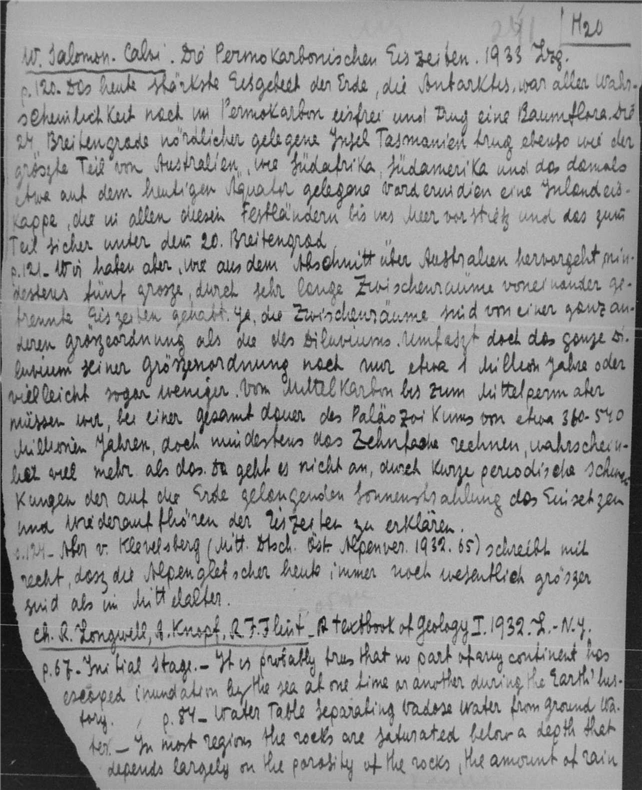 M20
W. Salomon-Calvi. Die Permokarbonischen Eiszeiten. 1933 Lzg.
p.120. Das heute stärkste Eisgebiet der Erde, die Antarktis, war aller Wahr-
scheinlichkeit nach im Permokarbon eisfrei und trug eine Baumflora. Die
24 Breitengrade nördlicher gelegene Insel Tasmanien trug ebenso wie der
gröszte Teil von Australien, wie Südafrika, Südamerika und das damals
etwa auf dem heutigen Äquator gelegene Vorderindien eine Inlandeis-
kappe, die in allen diesen Festländern bis ins Meer vorstiesz und das zum
Teil sicher unter dem 20. Breitengrad.
p.121. Wir haben aber, wie aus dem Abschnitt über Australien hervorgeht, min-
destens fünf grosze, durch sehr lange Zwischenräume voneinander ge-
trennte Eiszeiten gehabt. Ja, die Zwischenräume sind von einer ganz an-
deren gröszeordnung als die des Diluviums. Umfaszt doch das ganze Di-
luvium seiner Gröszenordnung nach nur etwa 1 Million Jahre oder
vielleicht sogar weniger. Vom Mittelkarbon bis zum Mittelperm aber
müssen wir, bei einer gesamtdauer des Paläozoikums von etwa 360-540
Millionen Jahren, doch mindestens das Zehnfache rechnen, wahrschein-
lich viel mehr als das. Da geht es nicht an, durch kurze periodische Schwan-
kungen der auf die Erde gelangenden Sonnenstrahlung das Einsetzen
und Wiederaufhören der Eiszeiten zu erklären.
p.124- Aber v. Klevelsberg (Mitt. Dtsch. Öst. Alpenver. 1932. 65) schreibt mit
recht, dasz die Alpengletscher heute immer noch wesentlich grösser
sind als im Mittelalter.
Ch. R. Longwell, A. Knopf, R F Flint - A textbook of Geology I. 1932. L.- N.Y.
p.67- Initial stage.- It is probably true that no part of any continent has
escaped inundation by the sea at one time or another during the Earth' his-
tory. p. 84- Water Table separating Vadose Water from Ground Wa-
ter.- In most regions the rocks are saturated below a depth that
depends largely on the porosity of the rocks, the amount of rain